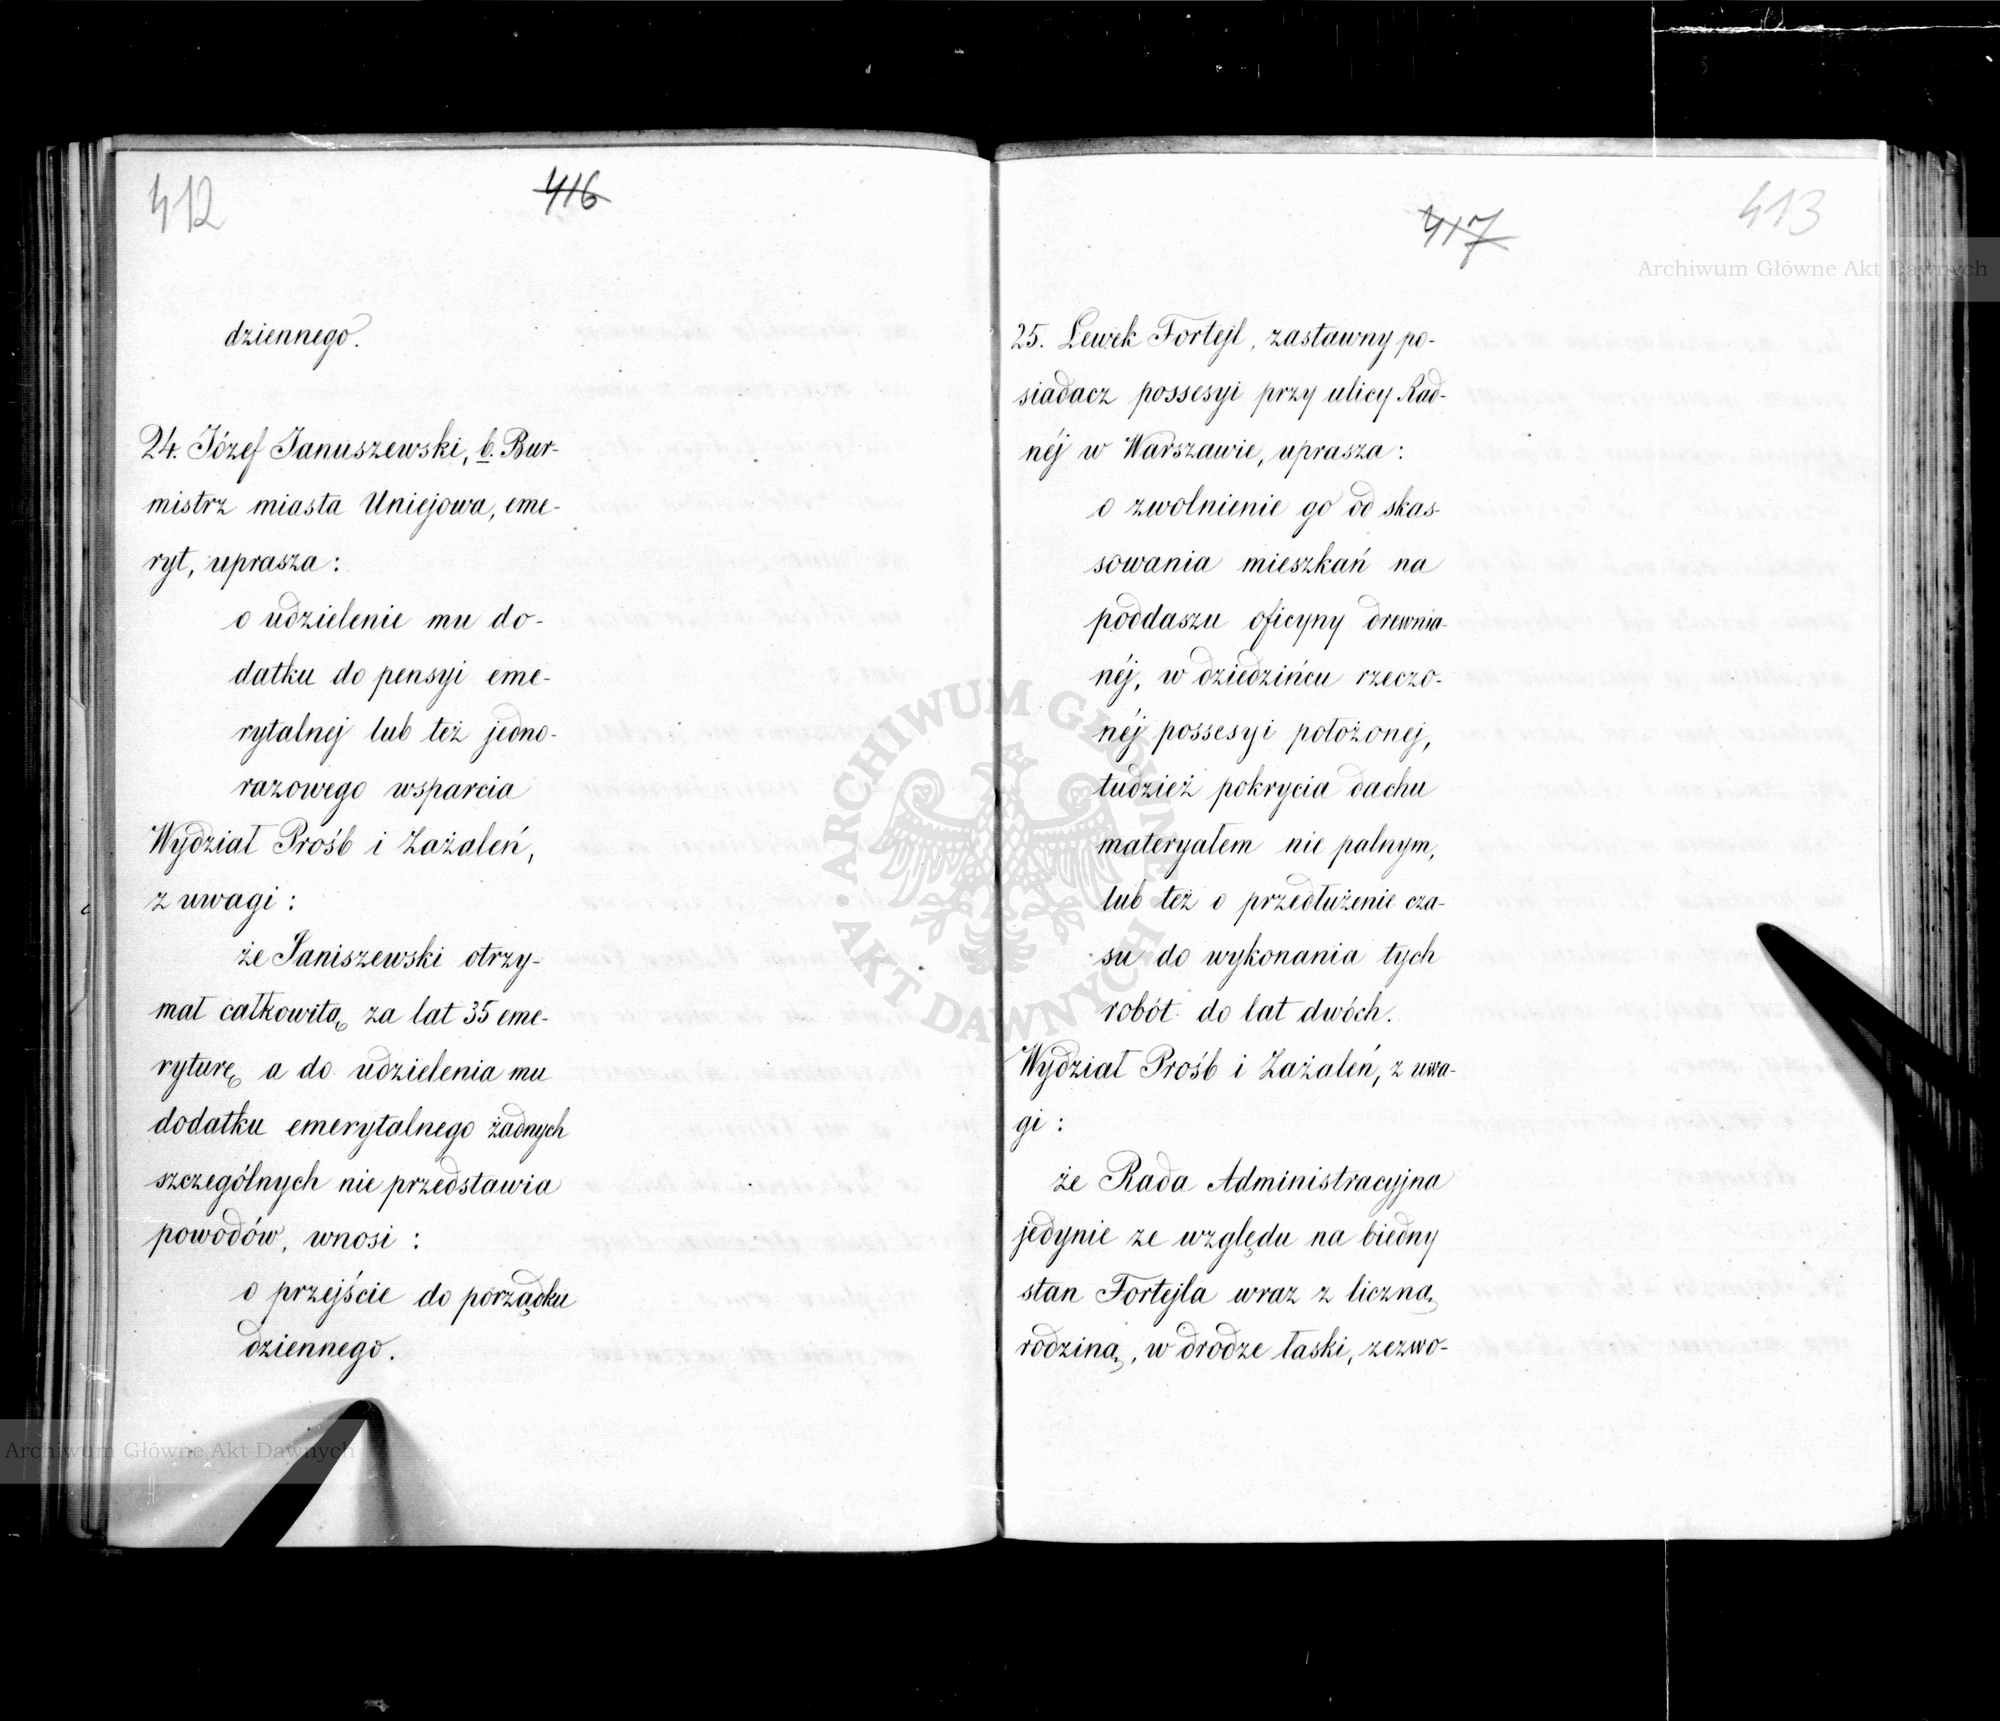 412
416
dziennego.
24. Józef Januszewski, b. Bur-
mistrz miasta Uniejowa, eme-
ryt, uprasza:
o udzielenie mu do-
datku do pensyi eme-
rytalnej lub też jedno-
razowego wsparcia
Wydział Prośb i Zażaleń,
z uwagi:
że Janiszewski otrzy-
mał całkowitą za lat 35 eme-
ryturę a do udzielenia mu
dodatku emerytalnego żadnych
szczególnych nie przedstawia
powodów, wnosi:
o przejście do porządku
dziennego.
Archiwum Główne Akt Dawnych
413
417
Archiwum Główne Akt Dawnych
25. Lewek Fortejl, zastawny po-
siadacz possesyi przy ulicy Rad-
néj w Warszawie, uprasza:
o zwolnienie go od skas-
sowania mieszkań na
poddaszu oficyny drewnia-
néj, w dziedzińcu rzeczo-
néj possesyi położonej,
tudzież pokrycia dachu
materyałem nie palnym,
lub też o przedłużenie cza-
su do wykonania tych
robót do lat dwóch.
Wydział Prośb i Zażaleń, z uwa-
gi:
że Rada Administracyjna
jedynie ze względu na biedny
stan Fortejla wraz z liczną
rodziną, w drodze łaski, zezwo-
ARCHIWUM GŁÓWNE AKT DAWNYCH